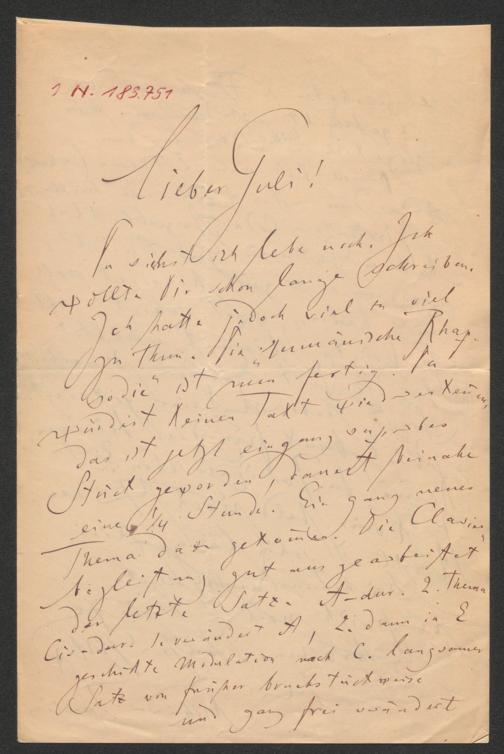 I N. 185.751
Lieber Juli!
Du siehst ich lebe noch. Ich
wollte Dir schon lange schreiben.
Ich hatte jedoch viel zu viel
zu thun. Die "Rumänische Rhap-
sodie" ist nun fertig. Du
würdest keinen Takt wiedererkennen,
das ist jetzt ein ganz
Stück geworden, dauert beinahe
eine 1/4 Stunde. Ein ganz neues
Thema dazu gekommen. Die Clavier
begleitung gut ausgearbeitet
der letzte Satz. A-dur. 2. Thema
Cis-dur. 1. verändert A, 2. dann in E
geschickte Modulation nach C. langsamer
Satz von früher bruchstückweise
und ganz frei verändert